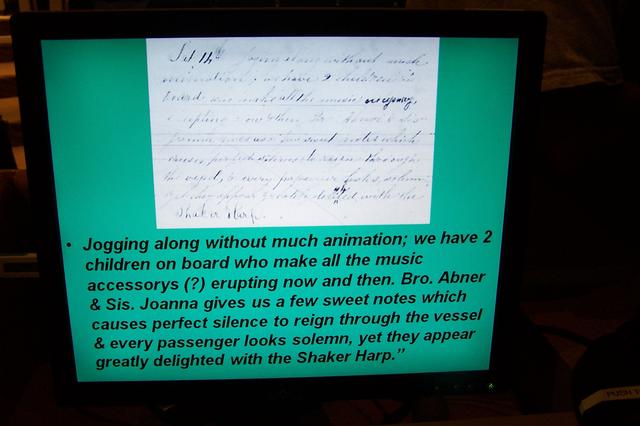 Sat 14th Joging along without much
animation; we have 2 children on
board who make all the music
now & then. Br. Abner & Sis
Joanna gives us a few sweet notes which
causes perfect silence to reign through
the vessel, & every passenger looks solemn,
yet they appear greatly delited with the
Shaker Harp.
• Jogging along without much animation; we have 2
children on board who make all the music
accessorys (?) erupting now and then. Bro. Abner
& Sis. Joanna gives us a few sweet notes which
causes perfect silence to reign through the vessel
& every passenger looks solemn, yet they appear
greatly delighted with the Shaker Harp.”
PUSH